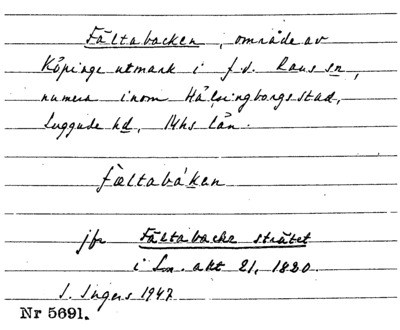 Fältabacken, område av
Köpinge utmark i f.d. Raus sn,
numera inom Hälsingborgs stad,
Luggude hd, Mhs län.
fæltabáken
jfr Fältabacke strätet
i Lm. akt 21, 1820.
I. Ingers 1947
Nr 5691.